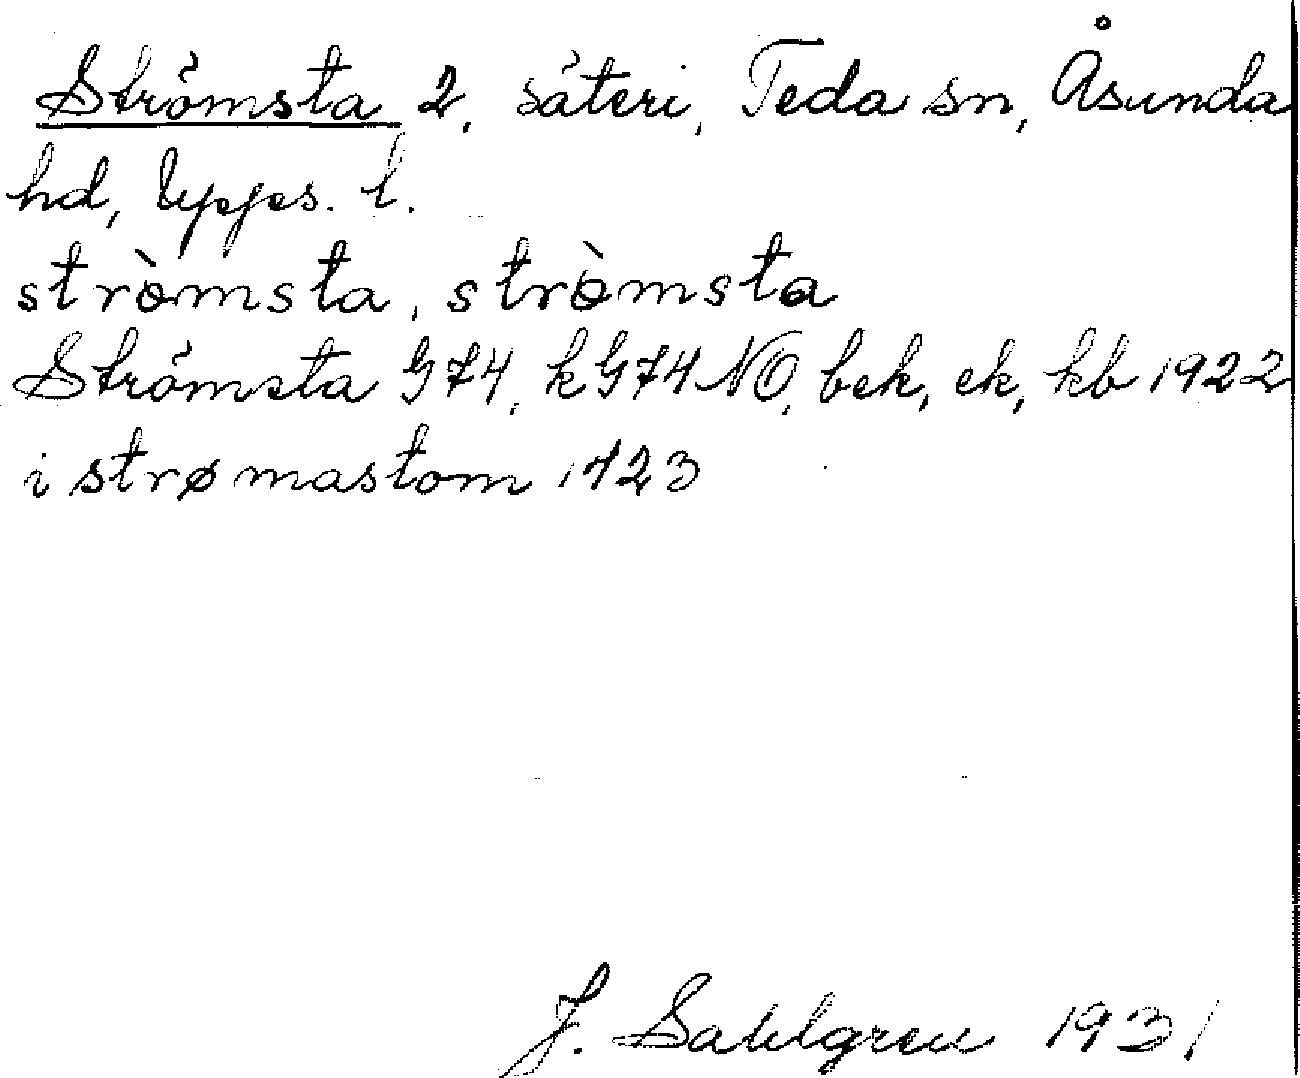 Strömsta 2, säteri, Teda sn, Åsunda
hd, Upps. l.
strò̀msta, strò̀msta
Strömsta G74, k G74 NO, bek, ek, kb 1922
i strømastom 1423
J. Sahlgren 1931